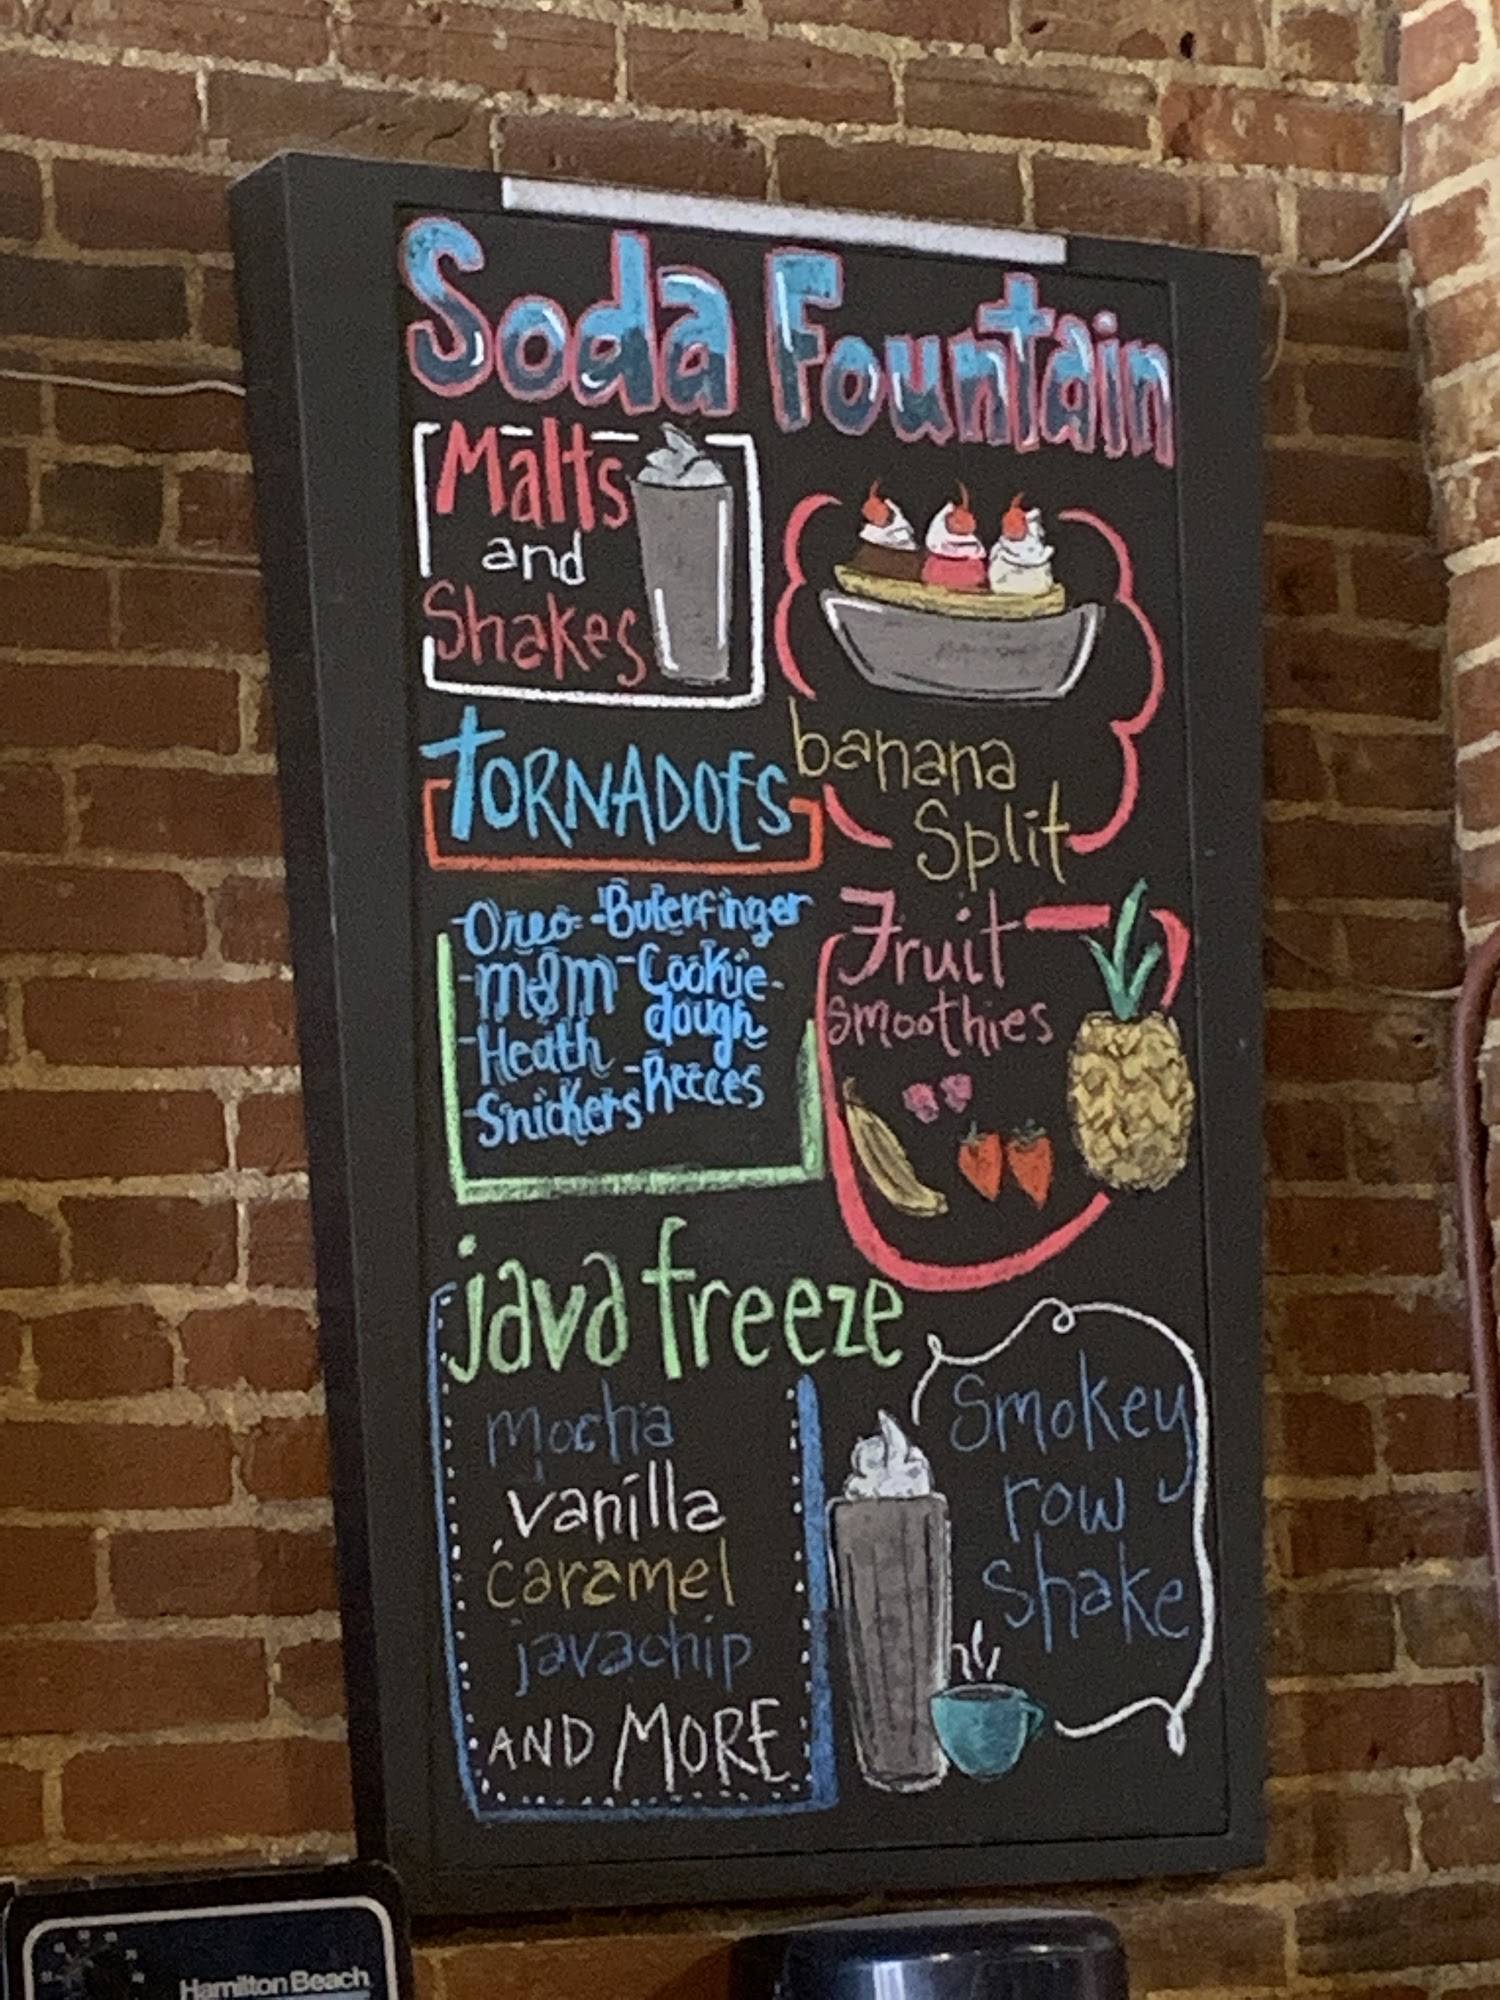 Soda Fountain
Malts
and
Shakes
banana
Split
TORNADOES
-Oreo -Buterfinger
-M&M -Cookie-
dough
-Heath
-Reeces
-Snickers
Fruit
smoothies
java freeze
mocha
vanilla
caramel
javachip
AND MORE
Smokey
row
shake
Hamilton Beach